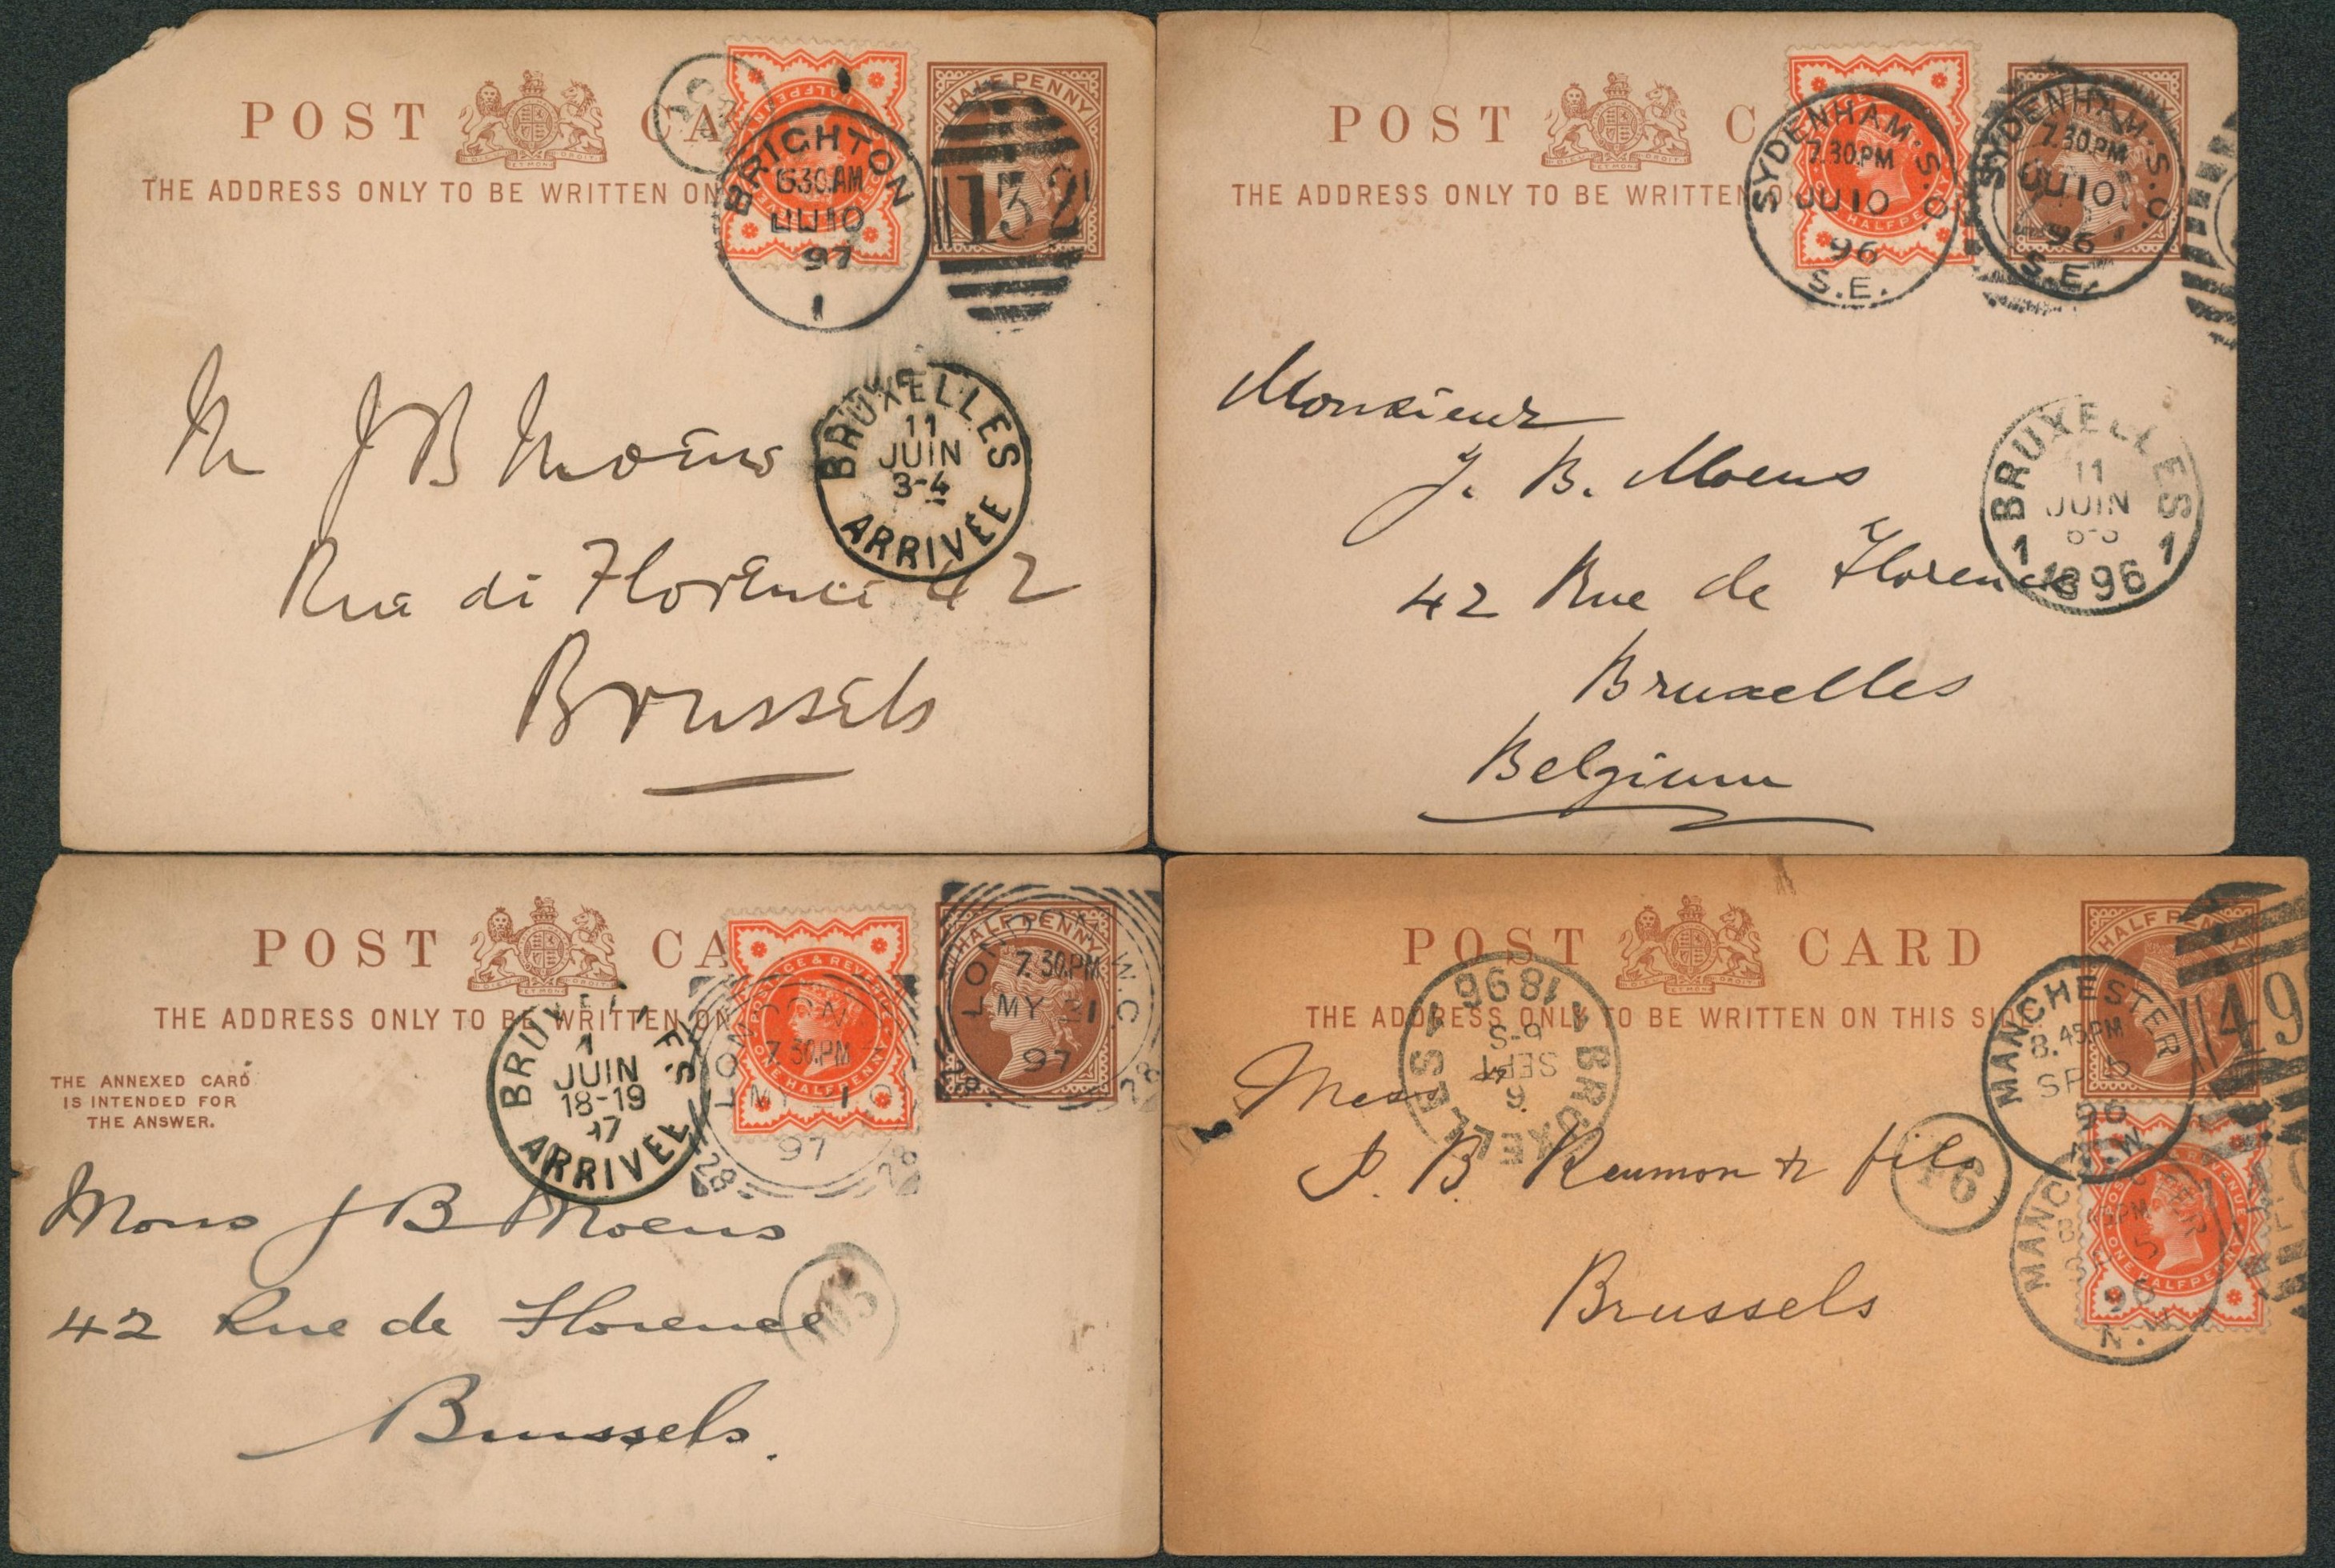 POST CA
THE ADDRESS ONLY TO BE WRITTEN ON
HALFPENNY
BRIGHTON
6 30.AM
JU 10
97
1
132
BRUXELLES
11
JUIN
3-4
ARRIVÉE
M J B Moens
Rue de Florence 42
Brussels
POST C
THE ADDRESS ONLY TO BE WRITTEN
HALFPENNY
SYDENHAM.S.O.
7.30.PM
JU 10
96
S.E.
SYDENHAM.S.O.
7.30.PM
JU 10
96
S.E.
BRUXELLES
11
JUIN
1 1896 1
Monsieur
J. B. Moens
42 Rue de Florence
Bruxelles
Belgium
POST CA
THE ADDRESS ONLY TO BE WRITTEN ON
THE ANNEXED CARD
IS INTENDED FOR
THE ANSWER.
POSTAGE & REVENUE
ONE HALFPENNY
HALFPENNY
LONDON
7 30.PM
MY 31
97
28 28
LONDON W.C
7.30.PM
MY 31
97
28 28
BRUXELLES
1
JUIN
18-19
97
ARRIVÉE
Mons J B Moens
42 Rue de Florence
Brussels.
POST CARD
THE ADDRESS ONLY TO BE WRITTEN ON THIS SIDE
HALFPENNY
MANCHESTER
8.45.PM
SP 5
96
N.W
49
MANCHESTER
5
96
N.
ONE HALFPENNY
1 BRUXELLES 1
6
SEPT
1896
Mess
J. B. Reumon & fils
Brussels